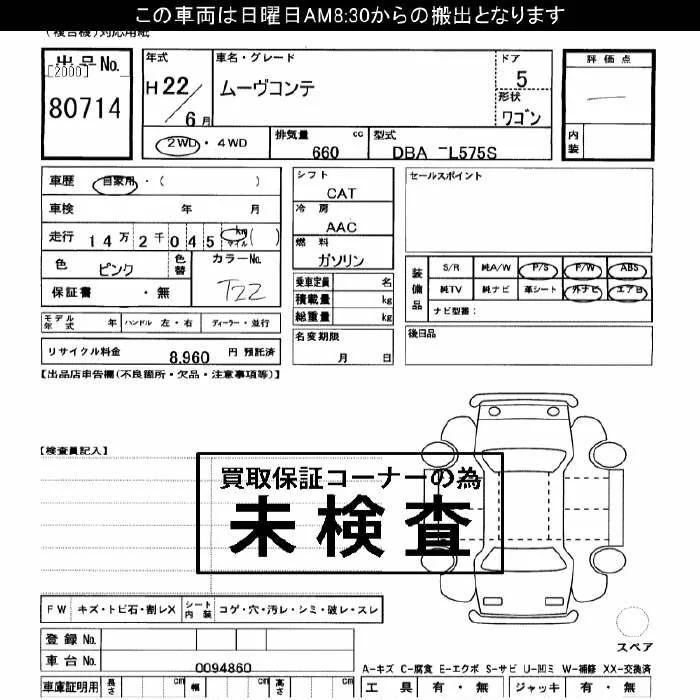 この車両は日曜日AM8:30からの搬出となります
(複合機)対応用紙
出品No.
[2000]
80714
年式
H22/6月
車名・グレード
ムーヴコンテ
ドア
5
形状
ワゴン
評価点
内装
2WD・4WD
排気量 cc
660
型式
DBA -L575S
車歴 自家用・( )
車検 年 月
走行 14万2千045 km マイル ( )
色 ピンク
色替
カラーNo.
T22
保証書 ・無
シフト
CAT
冷房
AAC
燃料
ガソリン
乗車定員 名
積載量 kg
総重量 kg
名変期限
月 日
セールスポイント
装備品
S/R 純A/W P/S P/W ABS
純TV 純ナビ 革シート 外ナビ エアB
ナビ型番:
後日品
モデル年式 年 ハンドル 左・右 ディーラー・並行
リサイクル料金 8,960 円 預託済
【出品店申告欄(不良箇所・欠品・注意事項等)】
【検査員記入】
買取保証コーナーの為
未検査
FW キズ・トビ石・割レX シート内装 コゲ・穴・汚レ・シミ・破レ・スレ
スペア
登録No.
車台No. 0094860
A-キズ C-腐食 E-エクボ S-サビ U-凹ミ W-補修 XX-交換済
車庫証明用 長さ cm 幅 cm 高さ cm 工具 有・無 ジャッキ 有・無